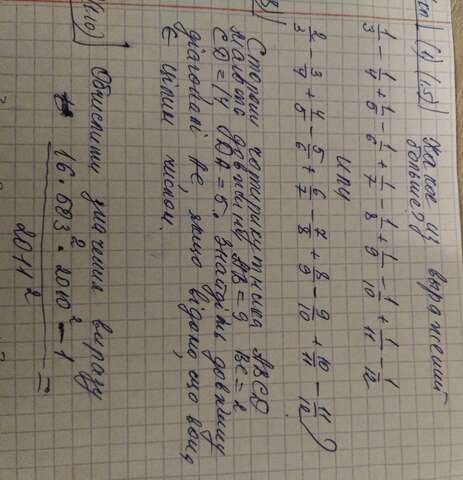 (1) (1,5) Какое из выражений
больше?
1/3 - 1/4 + 1/5 - 1/6 + 1/7 - 1/8 + 1/9 - 1/10 + 1/11 - 1/12
или
2/3 - 3/4 + 4/5 - 5/6 + 6/7 - 7/8 + 8/9 - 9/10 + 10/11 - 11/12
Сторони чотирикутника ABCD
мають довжини AB = 9 BC = 2
CD = 14 DA = 5. Знайдіть довжину
діагоналі AC, якщо відомо що вона
є цілим числом.
Обчислити значення виразу
16 · 503² · 2010² - 1
2011² =